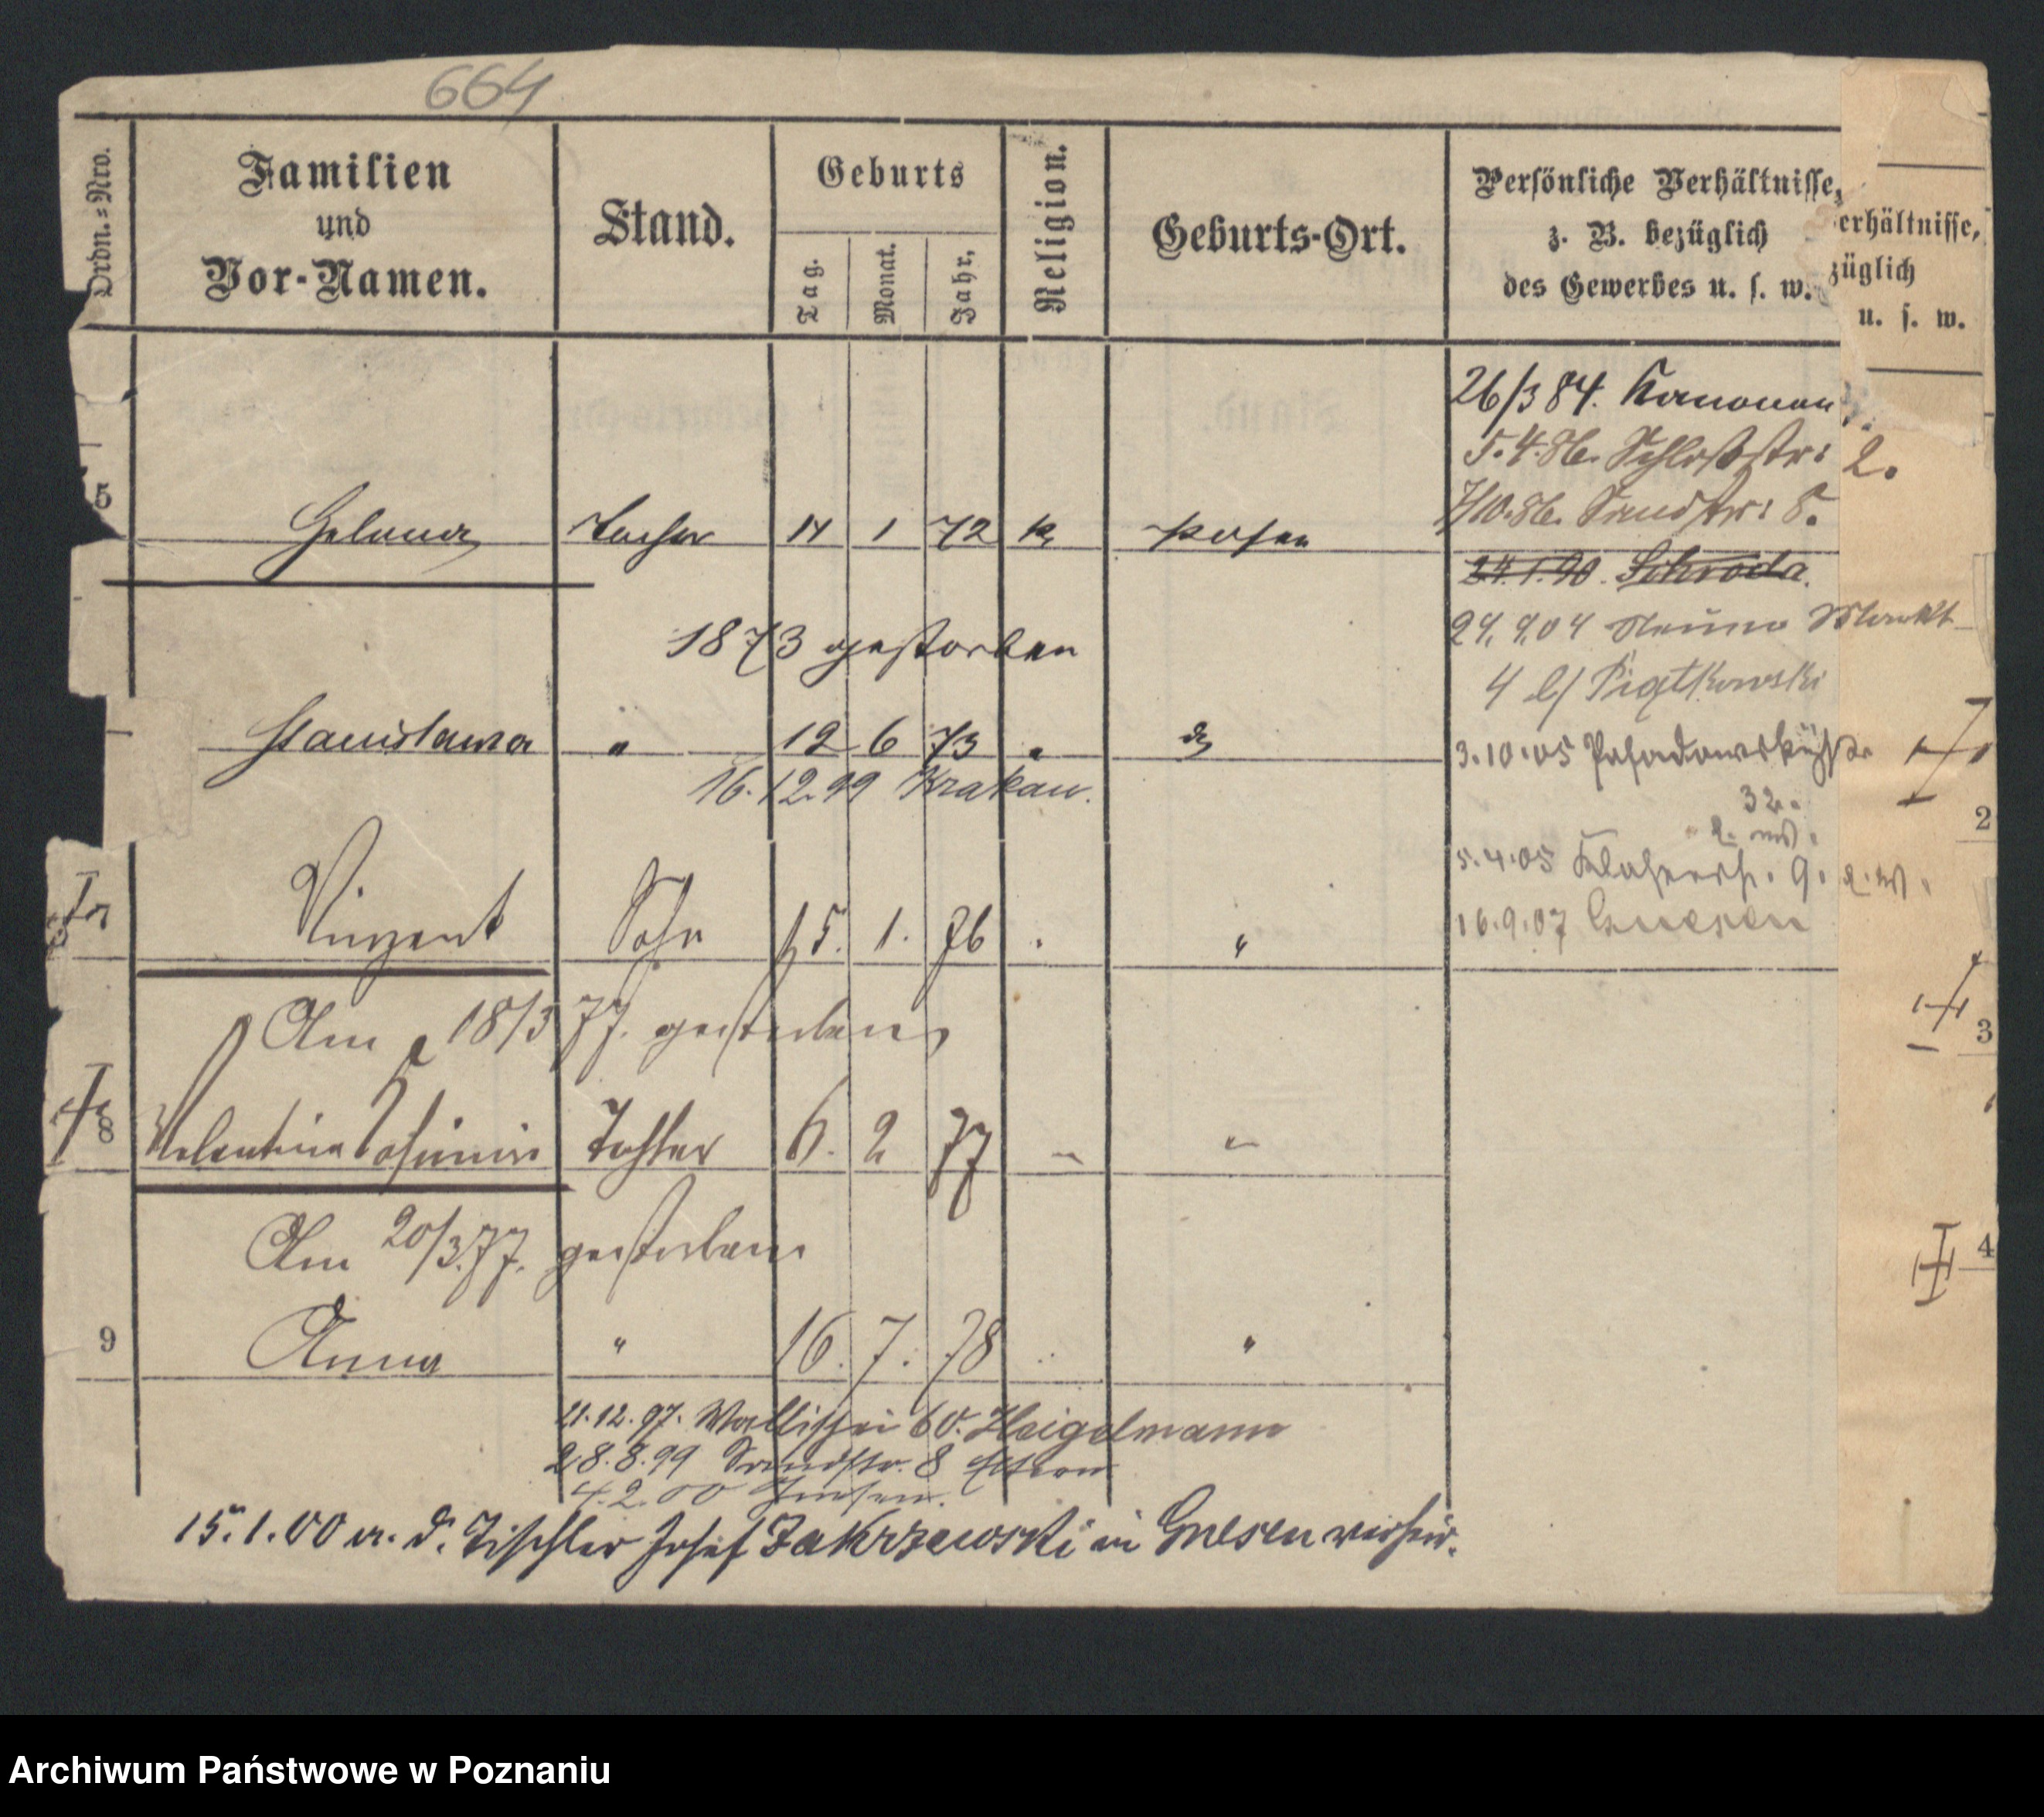 664
Ordn.=Nro.
Familien
und
Vor-Namen.
Stand.
Geburts
Tag.
Monat.
Jahr.
Religion.
Geburts-Ort.
Persönliche Verhältnisse,
z. B. bezüglich
des Gewerbes u. s. w.
erhältnisse,
züglich
u. s. w.
26/3 84. Kanonen
5.4.86. Schloßstr: 2.
7/10.86. Sandstr: 8.
5 Helena Tochter 14 1 72 k Posen
24.1.90. Schroda.
1873 gestorben
24.9.04 Neuer Markt
4 b/ Piątkowski
Stanislawa " 12 6 73 " do
3.10.05 Posadowskystr
32.
16.12.99 Krakau.
5.4.05 9.
16.9.07 Gnesen
7 Vinzent Sohn 15. 1. 76 "
Am 18/3 77. gestorben
8 Valentina Tochter 6. 2 77 "
Am 20/3.77. gestorben
9 Anna " 16. 7. 78 "
21.12.97. Wallischei 60. Heigelmann
28.8.99 Sandstr. 8 Eltern
4.2.00 Gnesen.
15.1.00 a. d. Tischler Josef Zakrzewski in Gnesen verheir.
2
3
4
Archiwum Państwowe w Poznaniu